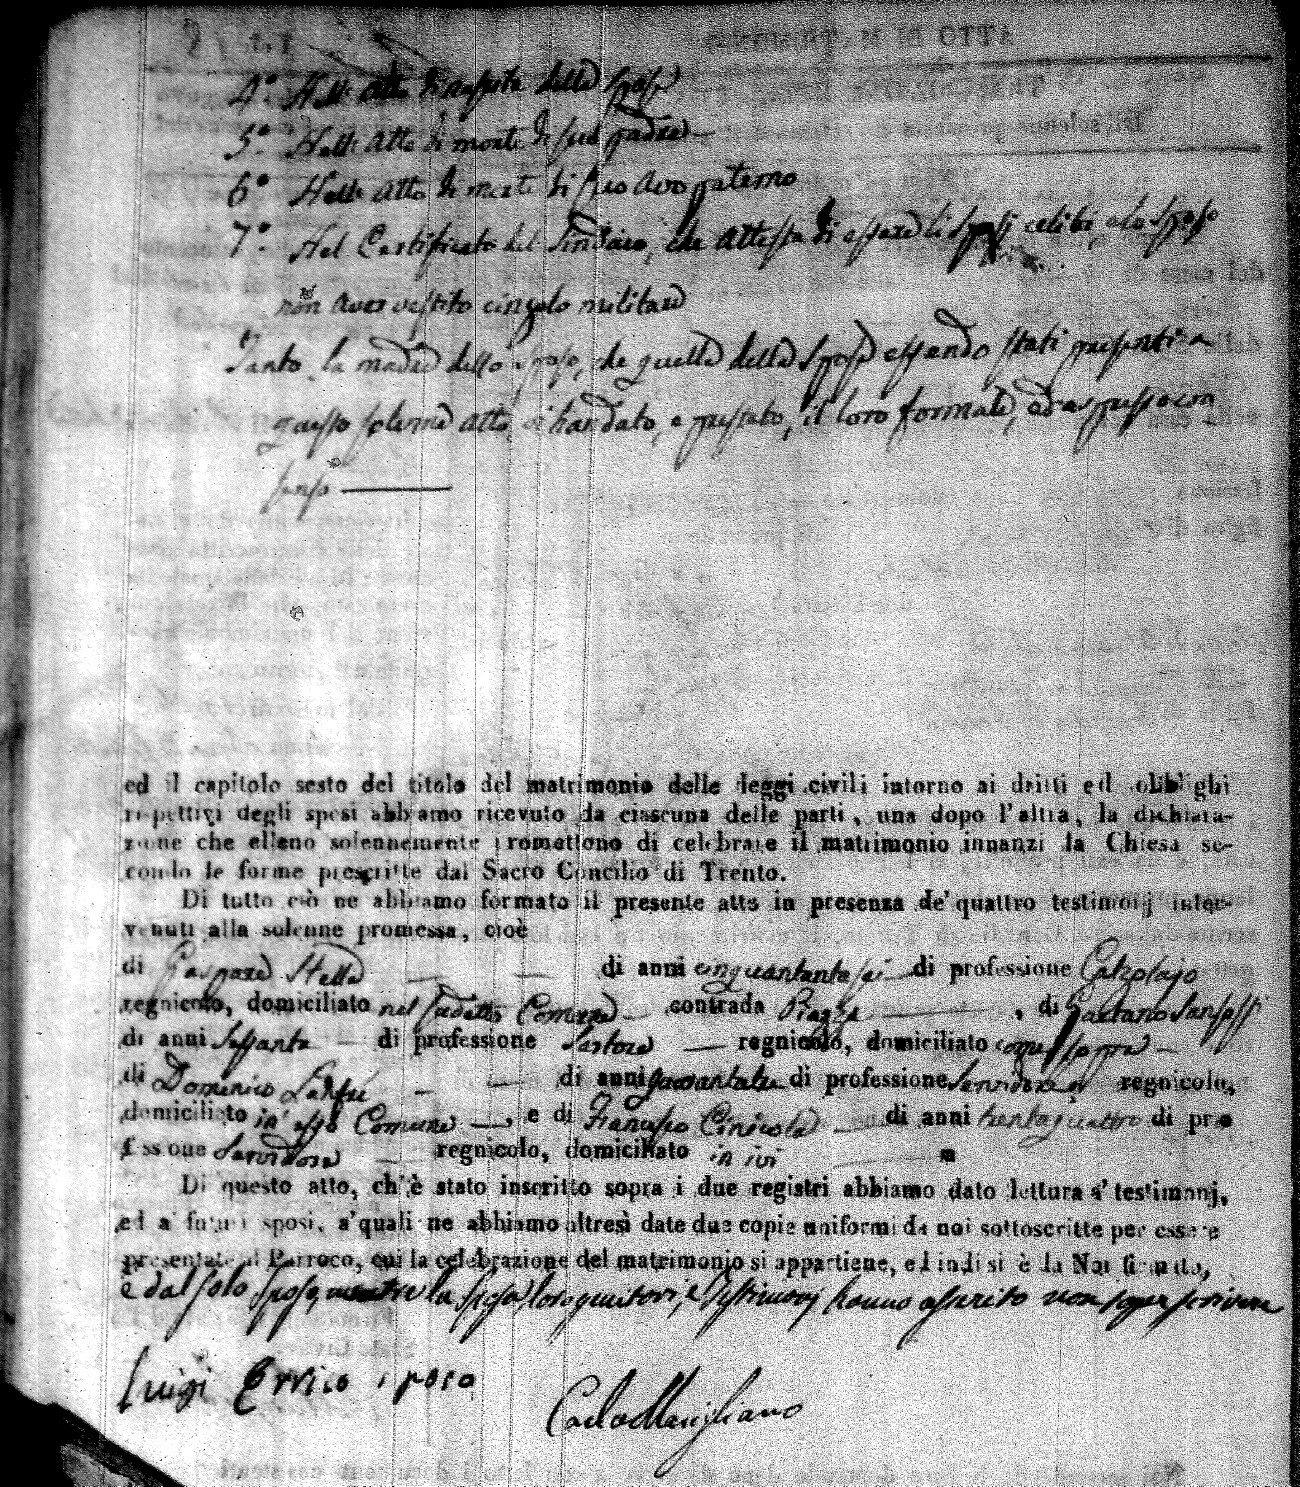 4.° Nell' atto di nascita della Sposa
5.° Nell' atto di morte di suo padre
6° Nell' atto di morte di suo avo paterno
7.° Nel Certificato del Sindaco, che attesta di essere li Sposi celibi, e lo Sposo
non aver vestito cingolo militare
Tanto la madre dello sposo, che quella della Sposa essendo stati presenti a
questo solenne atto, ci han dato, e prestato, il loro formale, ed espresso con
senso
ed il capitolo sesto del titolo del matrimonio delle leggi civili intorno ai dritti ed obblighi
rispettivi degli sposi abbiamo ricevuto da ciascuna delle parti, una dopo l'altra, la dichiara-
zione che elleno solennemente promettono di celebrare il matrimonio innanzi la Chiesa se-
condo le forme prescritte dal Sacro Concilio di Trento.
Di tutto ciò ne abbiamo formato il presente atto in presenza de' quattro testimonj inter-
venuti alla solenne promessa, cioè
di Gaspare Stella di anni cinquantasei di professione Calzolajo
regnicolo, domiciliato nel sudetto Comune contrada Piazza , di Gaetano
di anni Sessanta di professione Sartore regnicolo, domiciliato come sopra
di Domenico di anni quarantatre di professione Servidore regnicolo,
domiciliato in esso Comune , e di Francesco di anni trentaquattro di pro
fessione Servidore regnicolo, domiciliato in ivi
Di questo atto, ch'è stato inscritto sopra i due registri abbiamo dato lettura a' testimonj,
ed a' futuri sposi, a' quali ne abbiamo altresì date due copie uniformi da noi sottoscritte per essere
presentate al Parroco, cui la celebrazione del matrimonio si appartiene, ed indi si è da Noi firmato,
e dal solo sposo, mentre la sposa loro genitori, e Testimonj hanno asserito non saper scrivere
Luigi Errico sposo
Carlo Marigliano